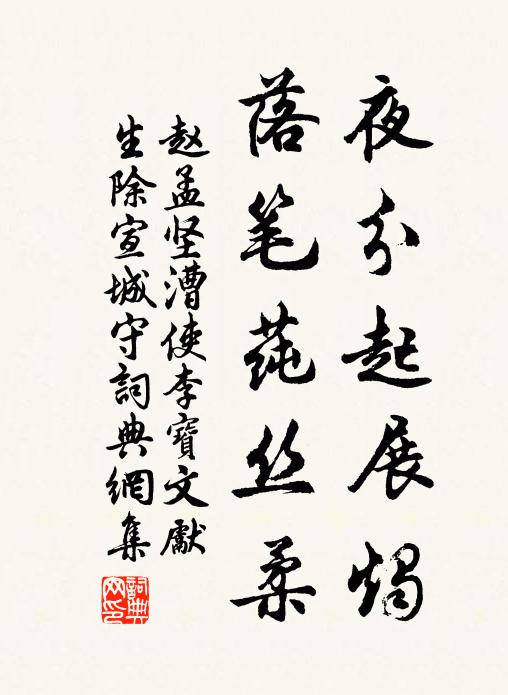 夜分起展燭
落笔莼丝柔
赵孟坚漕使李寶文獻
生除宣城守詞典網集
詞典网印